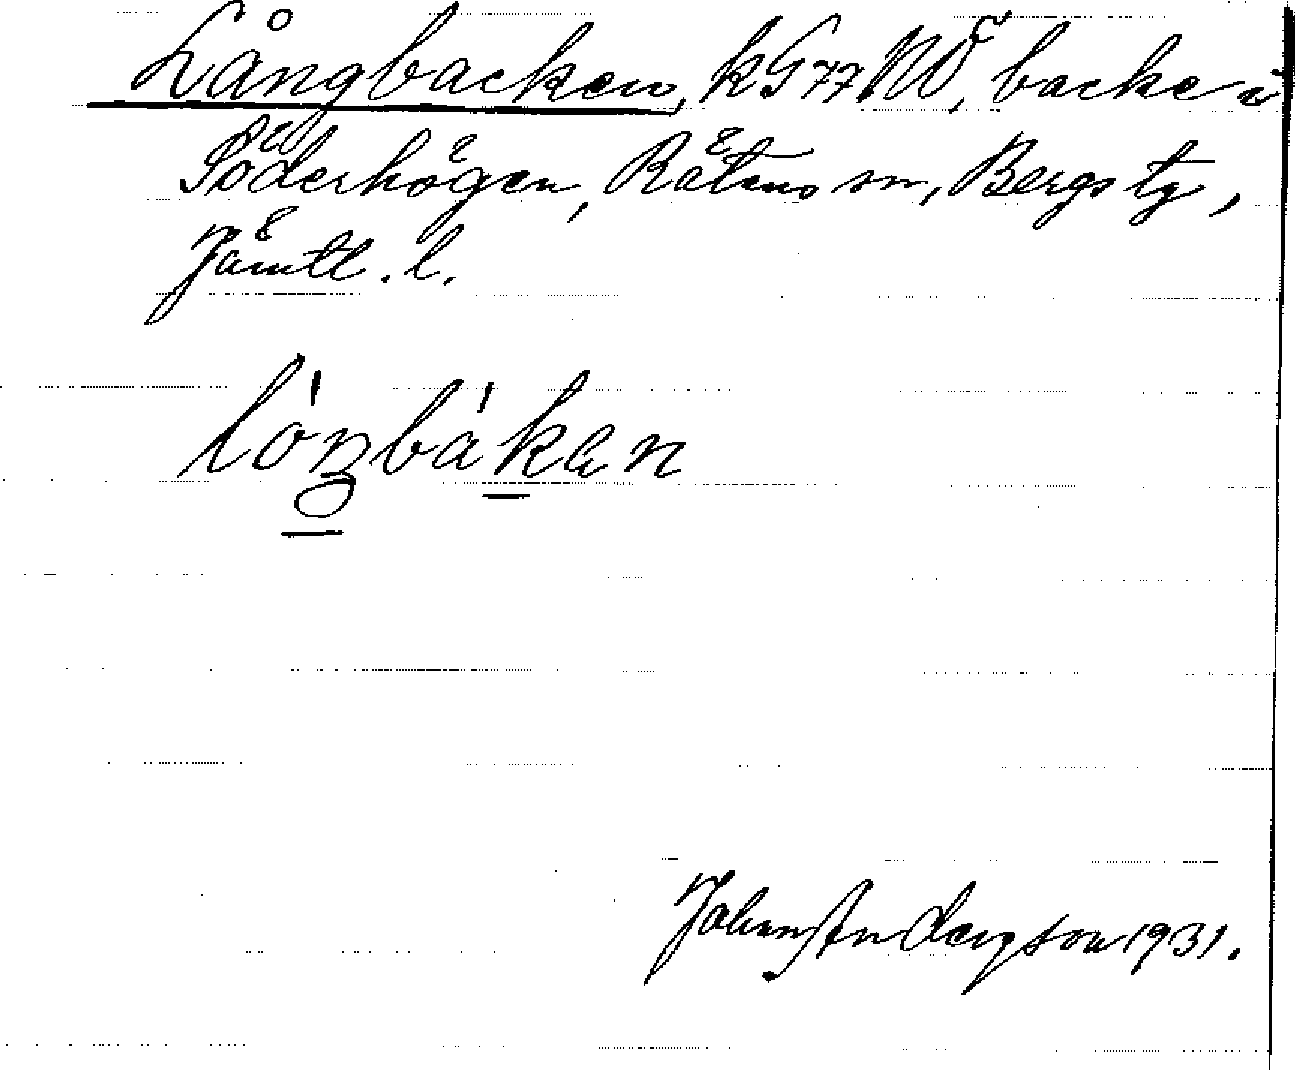 Långbacken, kG77NÖ, backe i
Söderhögen, Rätans sn, Bergs tg,
Jämtl. l.
lòŋbàkan
Johan Anderson 1931.